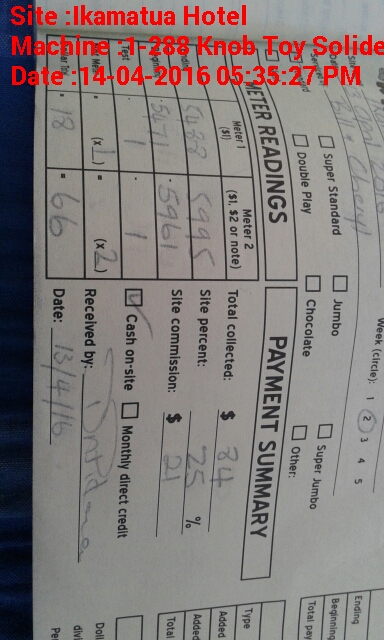 Site :Ikamatua Hotel
Machine :1-288 Knob Toy Solide
Date :14-04-2016 05:35:27 PM
Super Standard
Jumbo
Super Jumbo
Double Play
Chocolate
Other:
Week (circle): 1 2 3 4 5
METER READINGS
Meter 1
($1)
Meter 2
($1, $2 or note)
5488 5995
5471 5961
1 1
(x 1) = (x 2)
18 = 66
PAYMENT SUMMARY
Total collected: $ 84
Site percent: 25 %
Site commission: $ 21
Cash on-site
Monthly direct credit
Received by:
Date: 13/4/16
Ending
Beginning
Total pay
Type
Added
Added
Total
Doll
divi
Pe